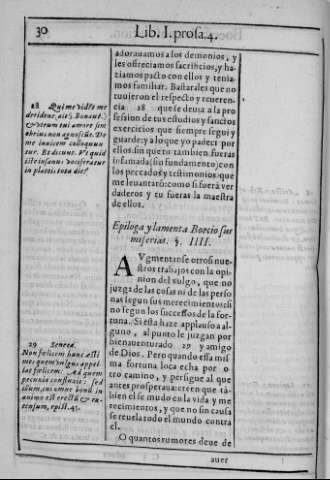 30
Lib. I. prosa. 4.
adorauamos a los demonios, y
les ofreciamos sacrificios, y ha-
ziamos pacto con ellos y tenia-
mos familiar. Bastarales que no
tuuieron el respecto y reueren-
cia 28 que se deuia a la pro
fession de tus estudios y sanctos
exercicios que siempre segui y
guarde; y a lo que yo padeci por
ellos sin que tu tambien fueras
infamada (sin fundamento) con
los peccados y testimonios que
me leuantarõ: como si fuerã ver
daderos y tu fueras la maestra
de ellos.
28 Qui me vidẽt me
derident, ait S. Bonaut.
& vtrum tui amore sim
ebrius non agnoscũt. De
me inuicem colloquun
tur. Et dicunt. Vt quid
iste insanus vociferatur
in plateis tota die?
Epiloga y lamenta Boecio sus
miserias. §. IIII.
AVgmentanse otros nue-
stros trabajos con la opi
nion del vulgo, que no
juzga de las cosas ni de las perso
nas segun sus merecimientos si
no segun los successos de la for-
tuna. Si esta haze applauso a al-
guno, al punto le juzgan por
bienauenturado 29 y amigo
de Dios. Pero quando essa mis
ma fortuna loca echa por o-
tro camino, y persigue al que
antes prosperaua: creen que tã-
bien el se mudo en la vida y me
recimientos, y que no sin causa
se reuela todo el mundo contra
el.
29 Seneca.
Non fœlicem hunc esti
mes quem vulgus appel
lat fœlicem: Ad quem
pecunia confluxit: sed
illum, cui omne bonũ in
animo est erectũ & ex-
celsum, epist. 45.
O quantos rumores deue de
auer